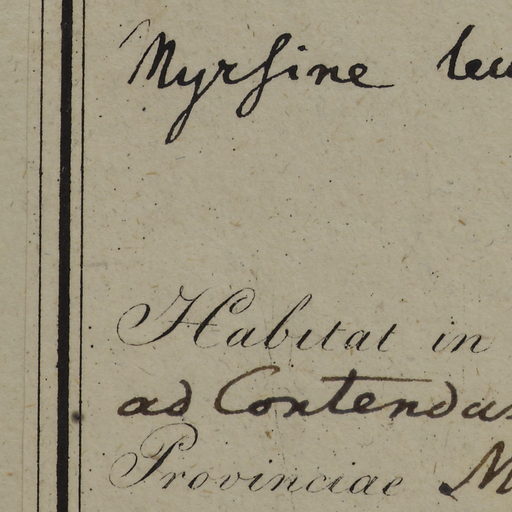 Myrsine leu
Habitat in
ad Contendas
Provinciae M